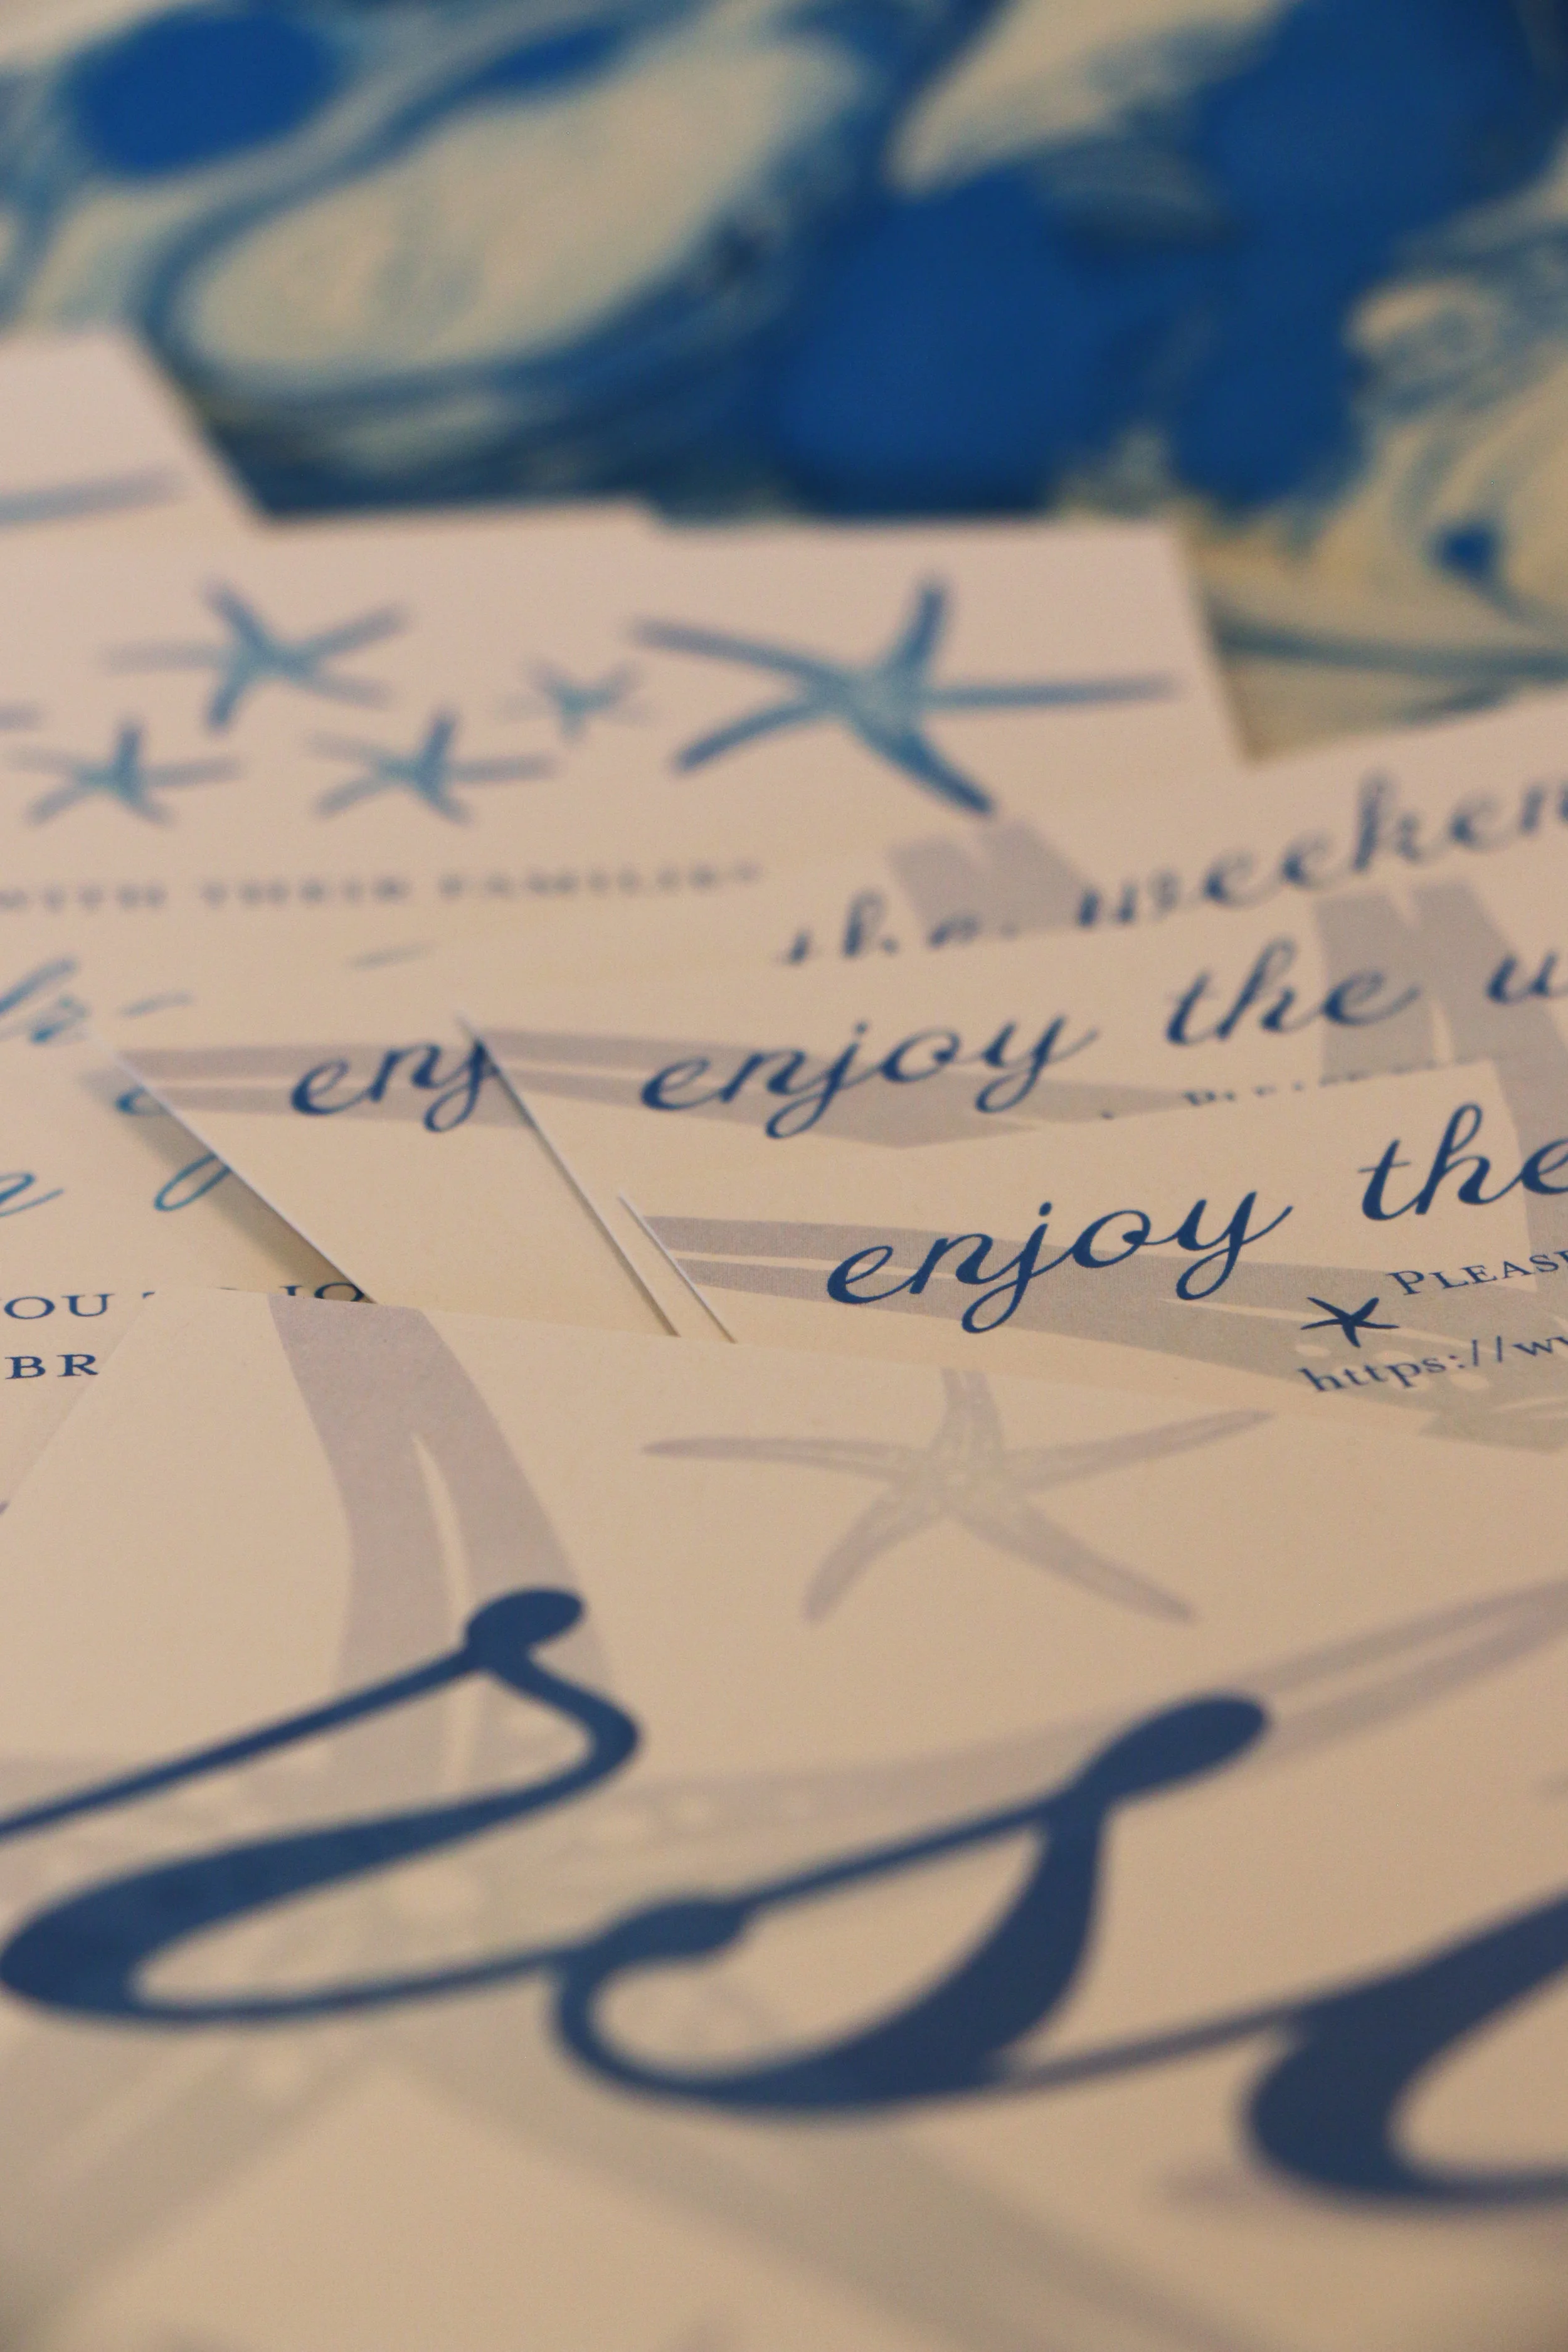 WITH THEIR FAMILIES
the weeken
enjoy the w
enj
enjoy the
PLEASE
https://ww
YOU
BR
rsv